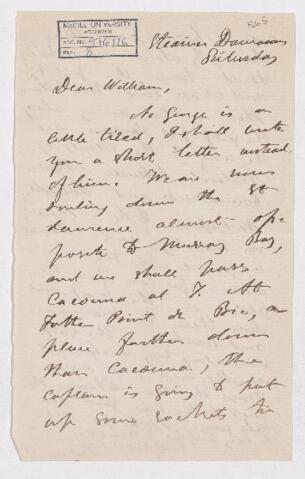 McGILL UNIVERSITY
ARCHIVES
ACC. NO. 976/16
REF. 8
Steamer
Saturday
Dear William,
As George is a
little tired, I shall write
you a short letter instead
of him. We are now
sailing down the St
Lawrence almost op-
posite to Murray Bay,
and we shall pass
Cacouna at 7. At
Father Point de Bic, a
place farther down
than Cacouna, the
Captain is going to put
up some rockets to